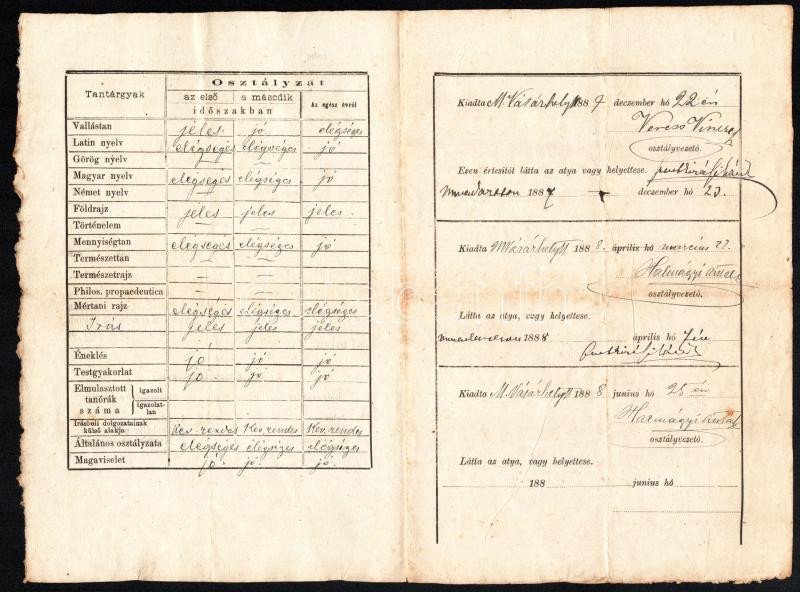 Tantárgyak
Osztályzat
az első
a második
Az egész évről
időszakban
Vallástan jeles jó elégséges
Latin nyelv elégséges elégséges jó
Görög nyelv — —
Magyar nyelv elégséges elégséges jó
Német nyelv — —
Földrajz jeles jeles jeles
Történelem — —
Mennyiségtan elégséges elégséges jó
Természettan — —
Természetrajz — —
Philos. propaedeutica — —
Mértani rajz elégséges elégséges elégséges
Irás jeles jeles jeles
Éneklés jó jó jó
Testgyakorlat jó jó jó
Elmulasztott tanórák száma
igazolt
igazolat-lan
Irásbeli dolgozatainak külső alakja Kev. rendes Kev. rendes Kev. rendes
Általános osztályzata elégséges elégséges elégséges
Magaviselet jó jó jó
Kiadta M. Vásárhelytt 1887 deczember hó 22 én
Veress Vincze
osztályvezető.
Ezen értesitőt látta az atya vagy helyettese.
1887 deczember hó 23.
Kiadta MVásárhelytt 1888. április hó március 27.
Halmágyi Antal
osztályvezető.
Látta az atya, vagy helyettese.
1888 április hó 7 én
Kiadta M. Vásárhelytt 1888 junius hó 25 én
Halmágyi Antal
osztályvezető.
Látta az atya, vagy helyettese.
188 junius hó